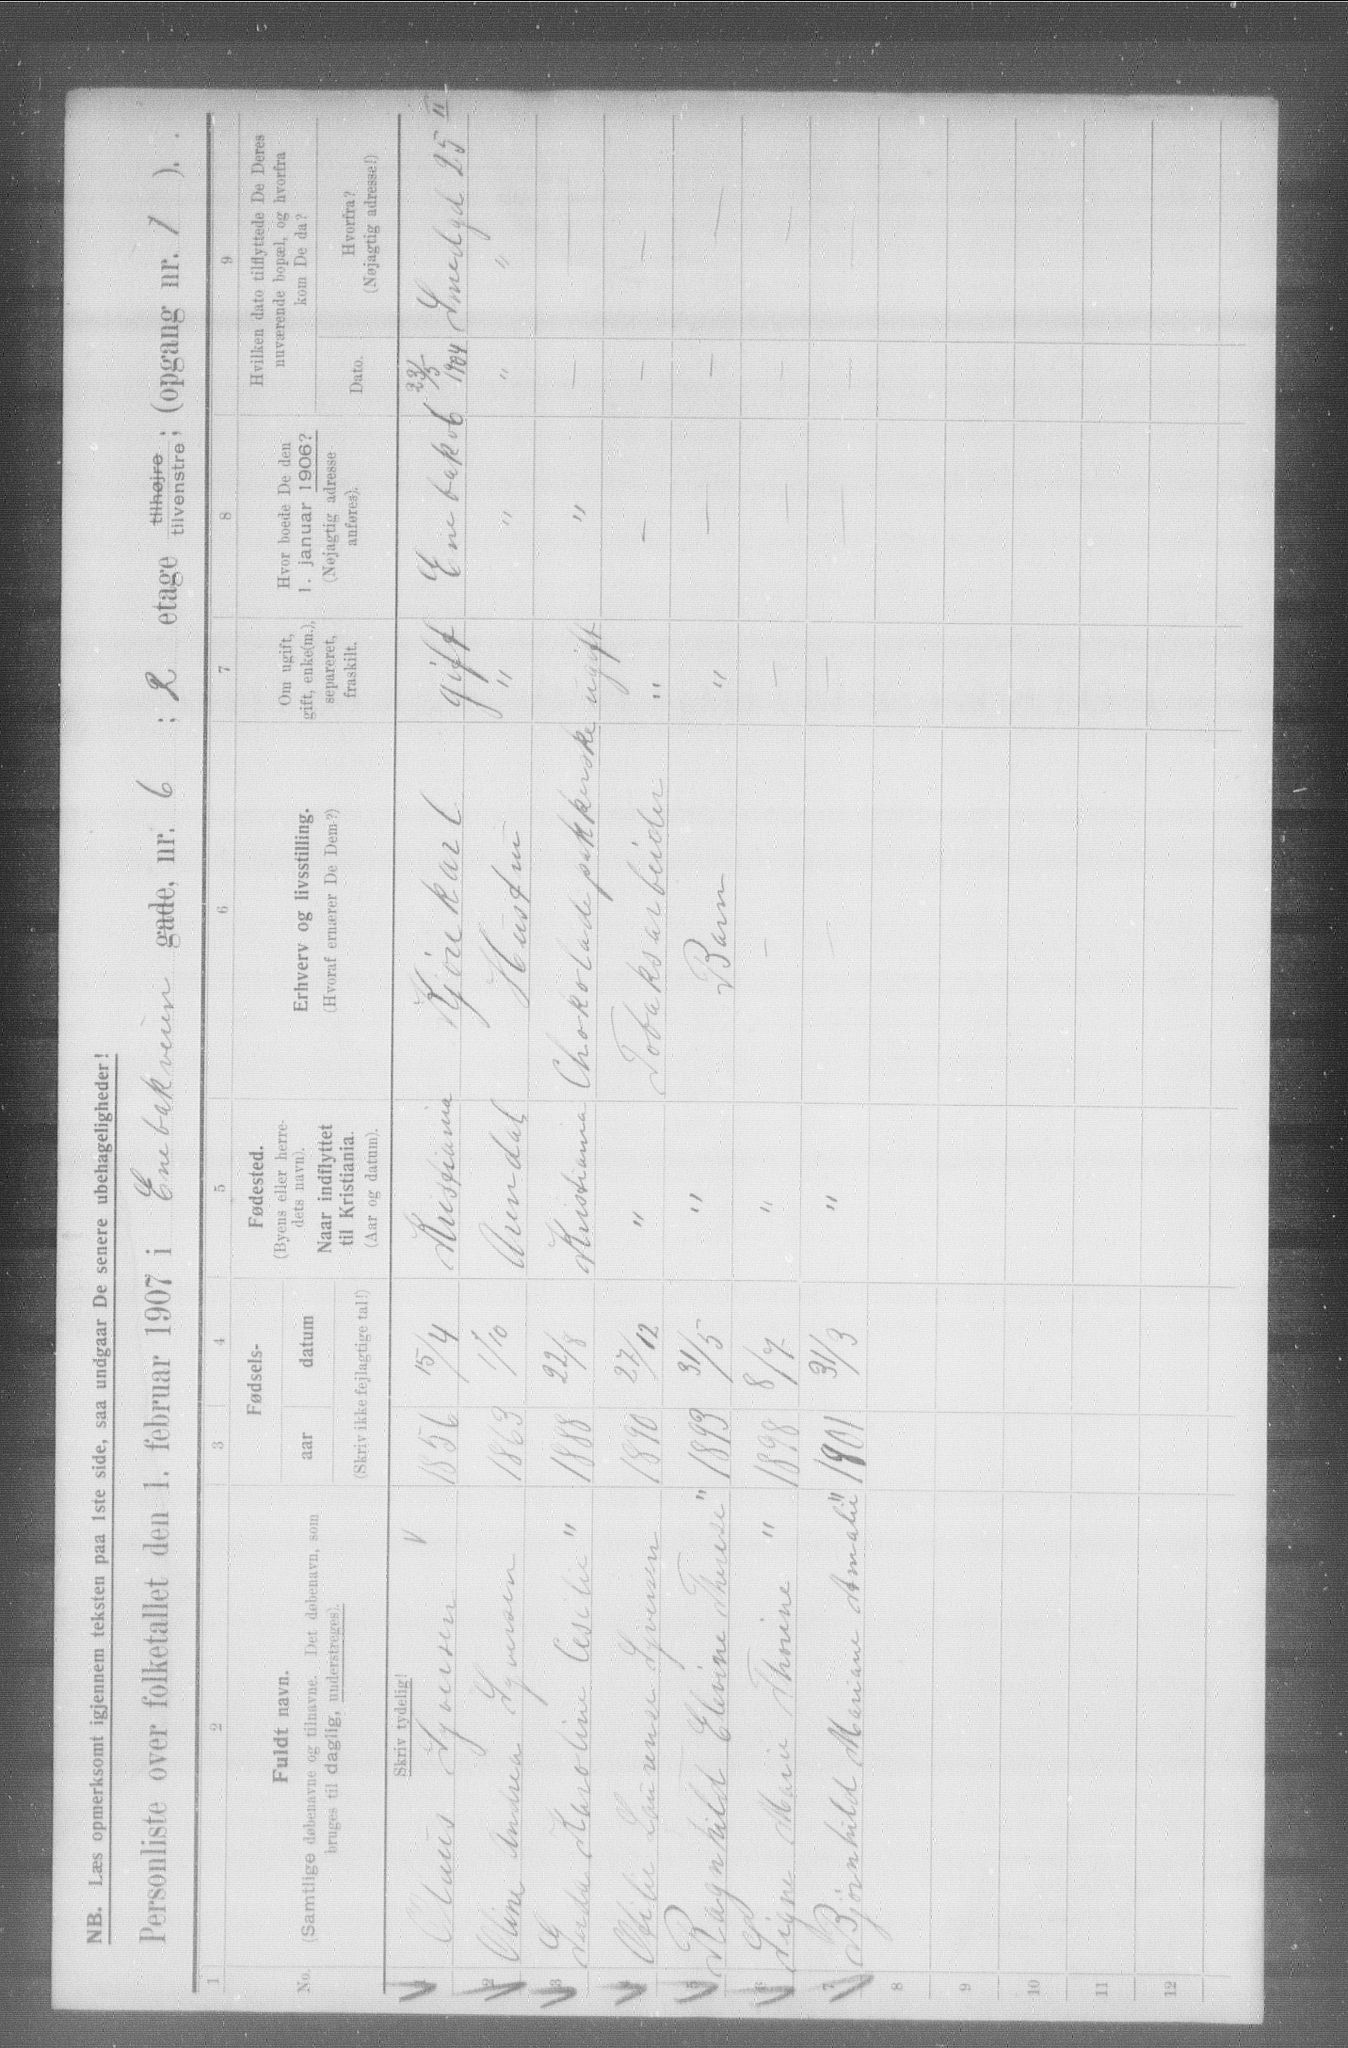 NB. Læs opmerksomt igjennem teksten paa 1ste side, saa undgaar De senere ubehageligheder!
Personliste over folketallet den 1. februar 1907 i Enebakveien gade, nr. 6 ; 2 etage tilhøjre tilvenstre; (opgang nr. 1 ).
1 2 3 4 5 6 7 8 9
No.
Fuldt navn.
(Samtlige døbenavne og tilnavne. Det døbenavn, som
bruges til daglig, understreges).
Fødsels-
aar datum
(Skriv ikke fejlagtige tal!)
Fødested.
(Byens eller herre-
dets navn).
Naar indflyttet
til Kristiania.
(Aar og datum).
Erhverv og livsstilling.
(Hvoraf ernærer De Dem?)
Om ugift,
gift, enke(m.),
separeret,
fraskilt.
Hvor boede De den
1. januar 1906?
(Nøjagtig adresse
anføres).
Hvilken dato tilflyttede De Deres
nuværende bopæl, og hvorfra
kom De da?
Dato.
Hvorfra?
(Nøjagtig adresse!)
Skriv tydelig!
1 Syversen 1856 15/4 Kristiania gift Enebakv 6 23/5 1904 Smedgd 25 II
2 Oline Andrea Syversen 1863 1/10 Arendal Hustru " " " "
3 Karoline " 1888 22/8 Kristiania Chokoladepakkerske ugift " — —
4 Syversen 1890 27/12 " Tobaksarbeider " — — —
5 Ragnhild Elvine " 1893 31/5 " Barn " — — —
6 Signe Marie " 1898 8/7 " — — — — —
7 Bjørnhild Mariane Amalie " 1901 31/3 " — — — — —
8
9
10
11
12